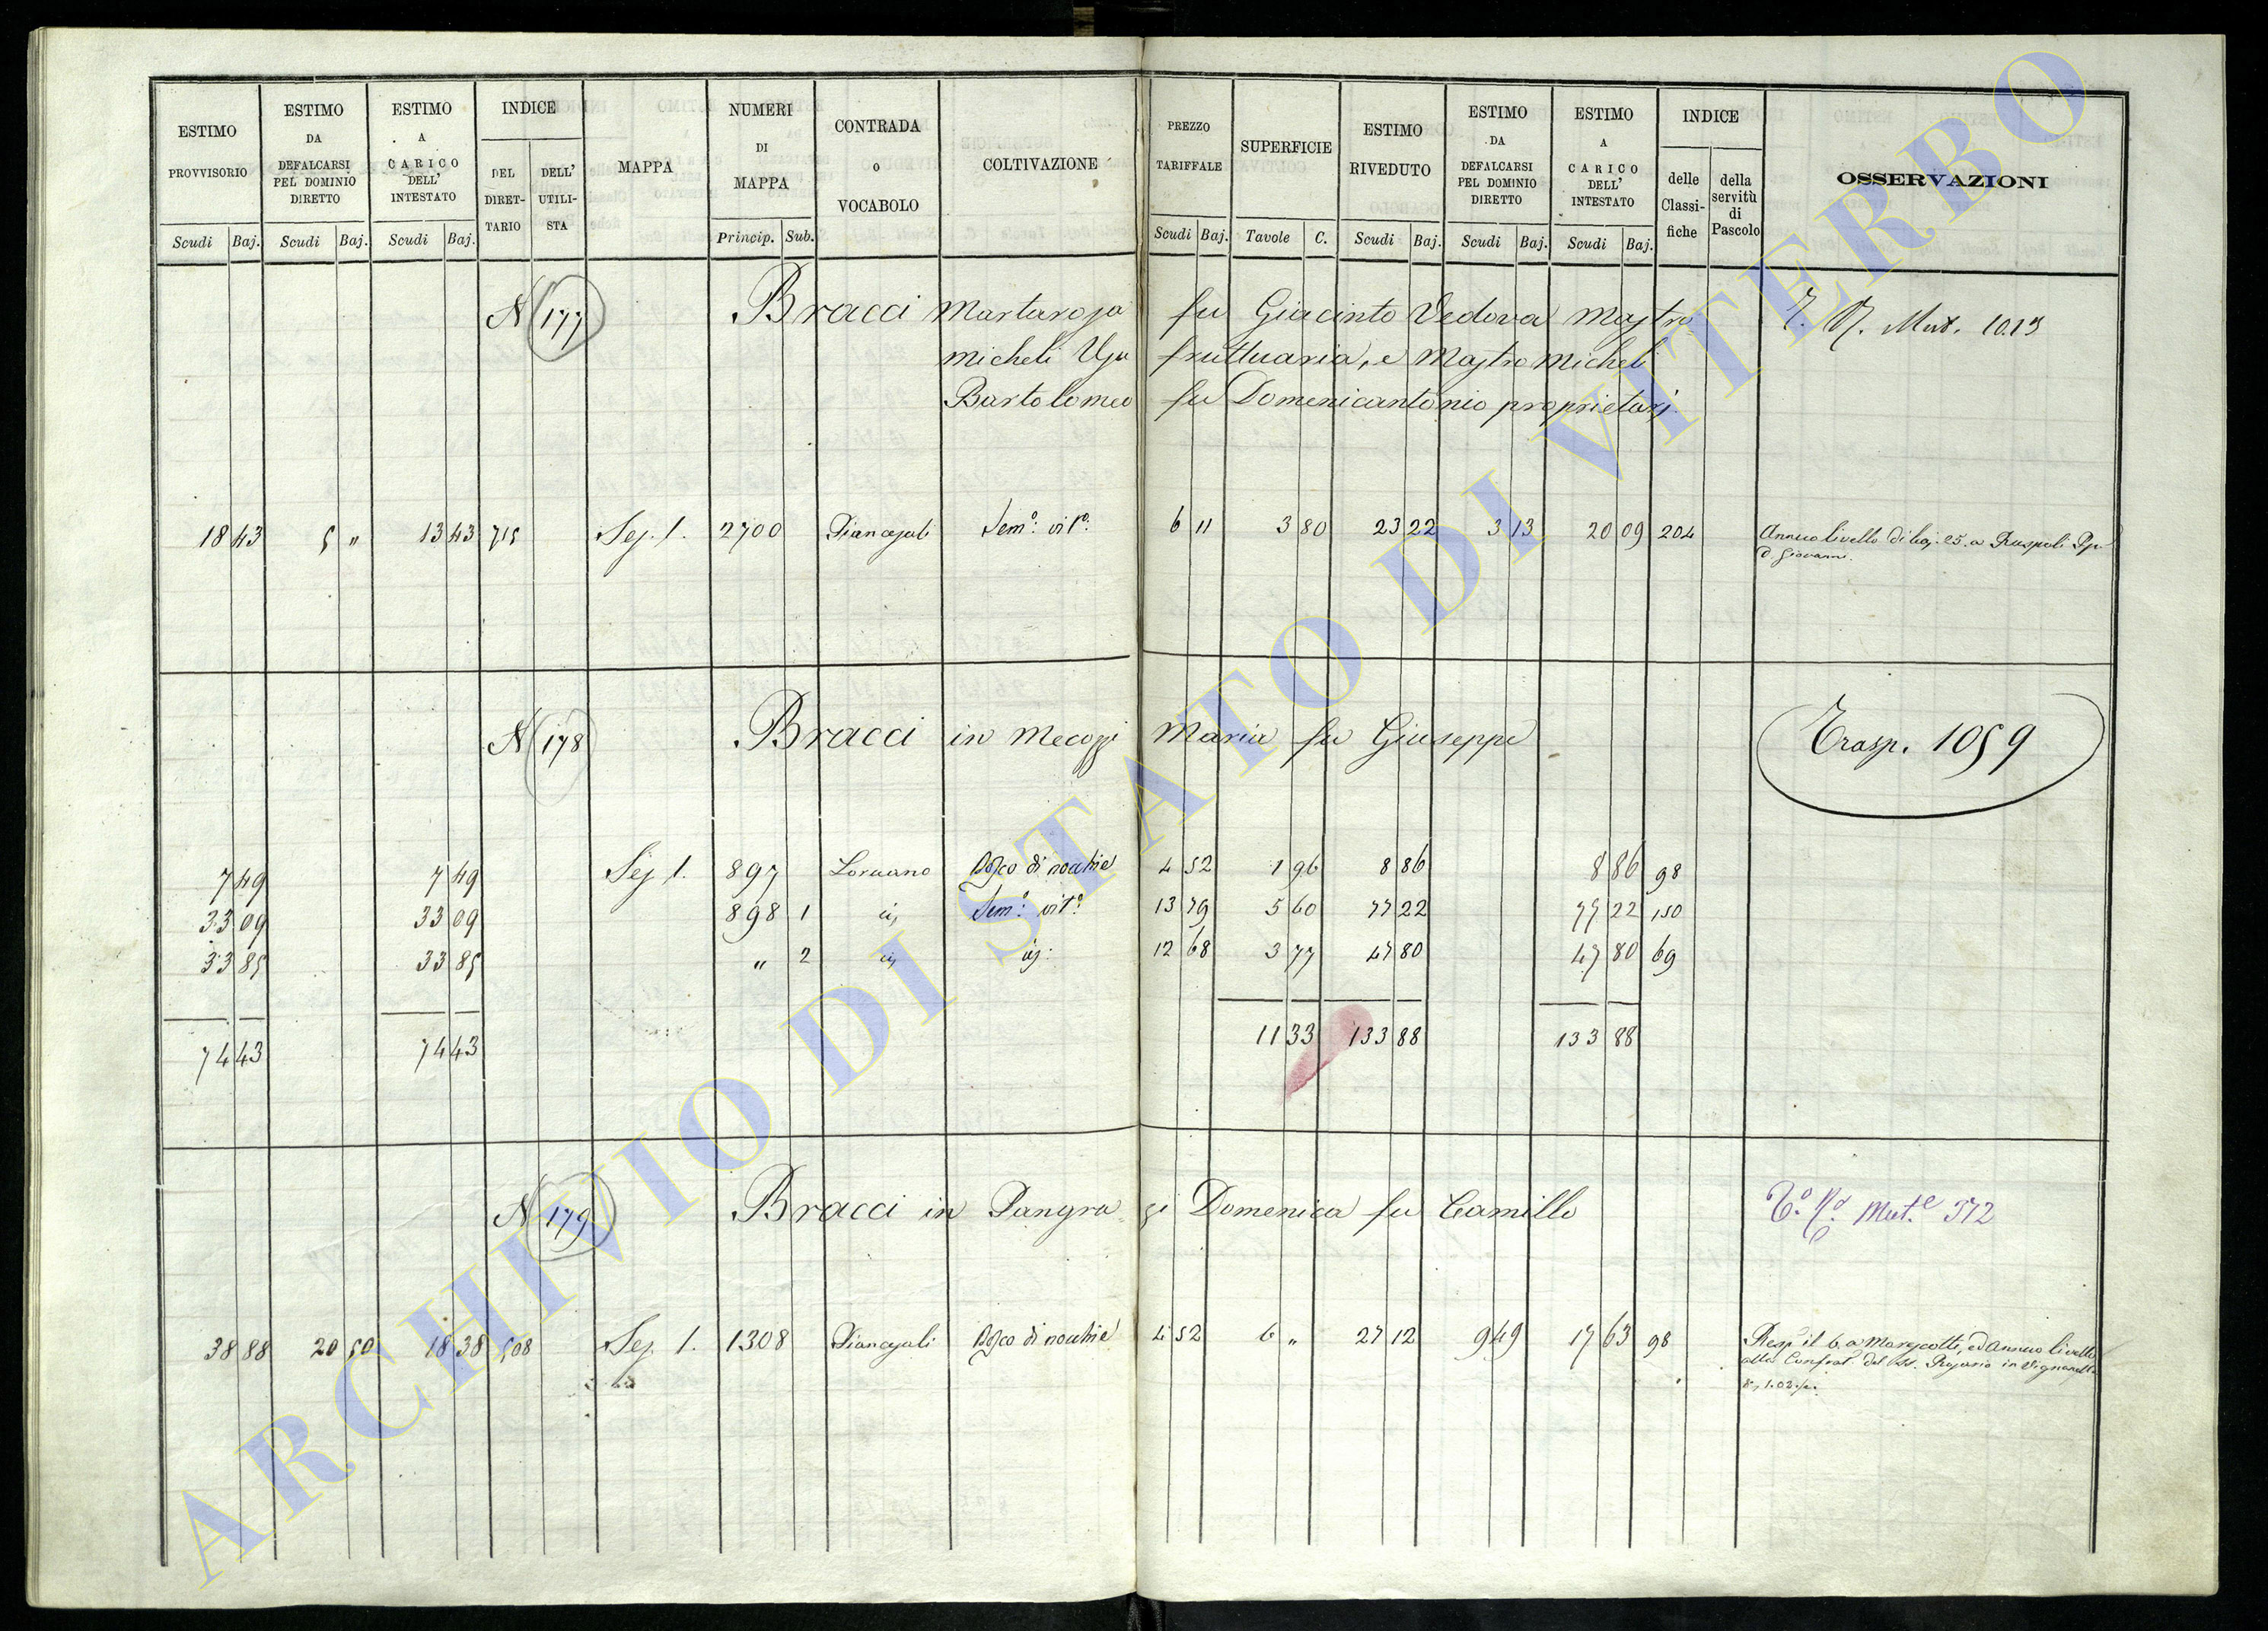 ESTIMO PROVVISORIO Scudi Baj.
ESTIMO DA DEFALCARSI PEL DOMINIO DIRETTO Scudi Baj.
ESTIMO A CARICO DELL' INTESTATO Scudi Baj.
INDICE DEL DIRETTARIO DELL' UTILISTA
MAPPA
NUMERI DI MAPPA Princip. Sub.
CONTRADA o VOCABOLO
COLTIVAZIONE
PREZZO TARIFFALE Scudi Baj.
SUPERFICIE Tavole C.
ESTIMO RIVEDUTO Scudi Baj.
ESTIMO DA DEFALCARSI PEL DOMINIO DIRETTO Scudi Baj.
ESTIMO A CARICO DELL' INTESTATO Scudi Baj.
INDICE delle Classifiche della servitù di Pascolo
OSSERVAZIONI
N 177 Bracci Martarosa fu Giacinto Vedova Mastro Mut. 1013
micheli Usu fruttuaria, e Mastro Micheli
Bartolomeo fu Domenicantonio proprietarj
18 43 5 " 13 43 715 Sez. 1. 2700 Piancajali Sem.º vit.º 6 11 3 80 23 22 3 13 20 09 204 Annuo livello di baj. 25. a Ruspoli Pp.
D. Giovanni.
N 178 Bracci in Mecozzi Maria fu Giuseppe Trasp. 1059
7 49 7 49 Sez 1. 897 Loruano Bosco di nocchie 4 52 1 96 8 86 8 86 98
33 09 33 09 898 1 id Sem.º vit.º 13 79 5 60 77 22 77 22 150
33 85 33 85 " 2 id id: 12 68 3 77 47 80 47 80 69
74 43 74 43 11 33 133 88 133 88
N 179 Bracci in Pangra zi Domenica fu Camillo Mut.e 572
38 88 20 50 18 38 508 Sez. 1. 1308 Piancajali Bosco di nocchie 4 52 6 " 27 12 9 49 17 63 98 Resp. il 6. a Marescotti, ed annuo livello
alla Confrat. del SS. Rosario in Vignanello
1.02.
ARCHIVIO DI STATO DI VITERBO